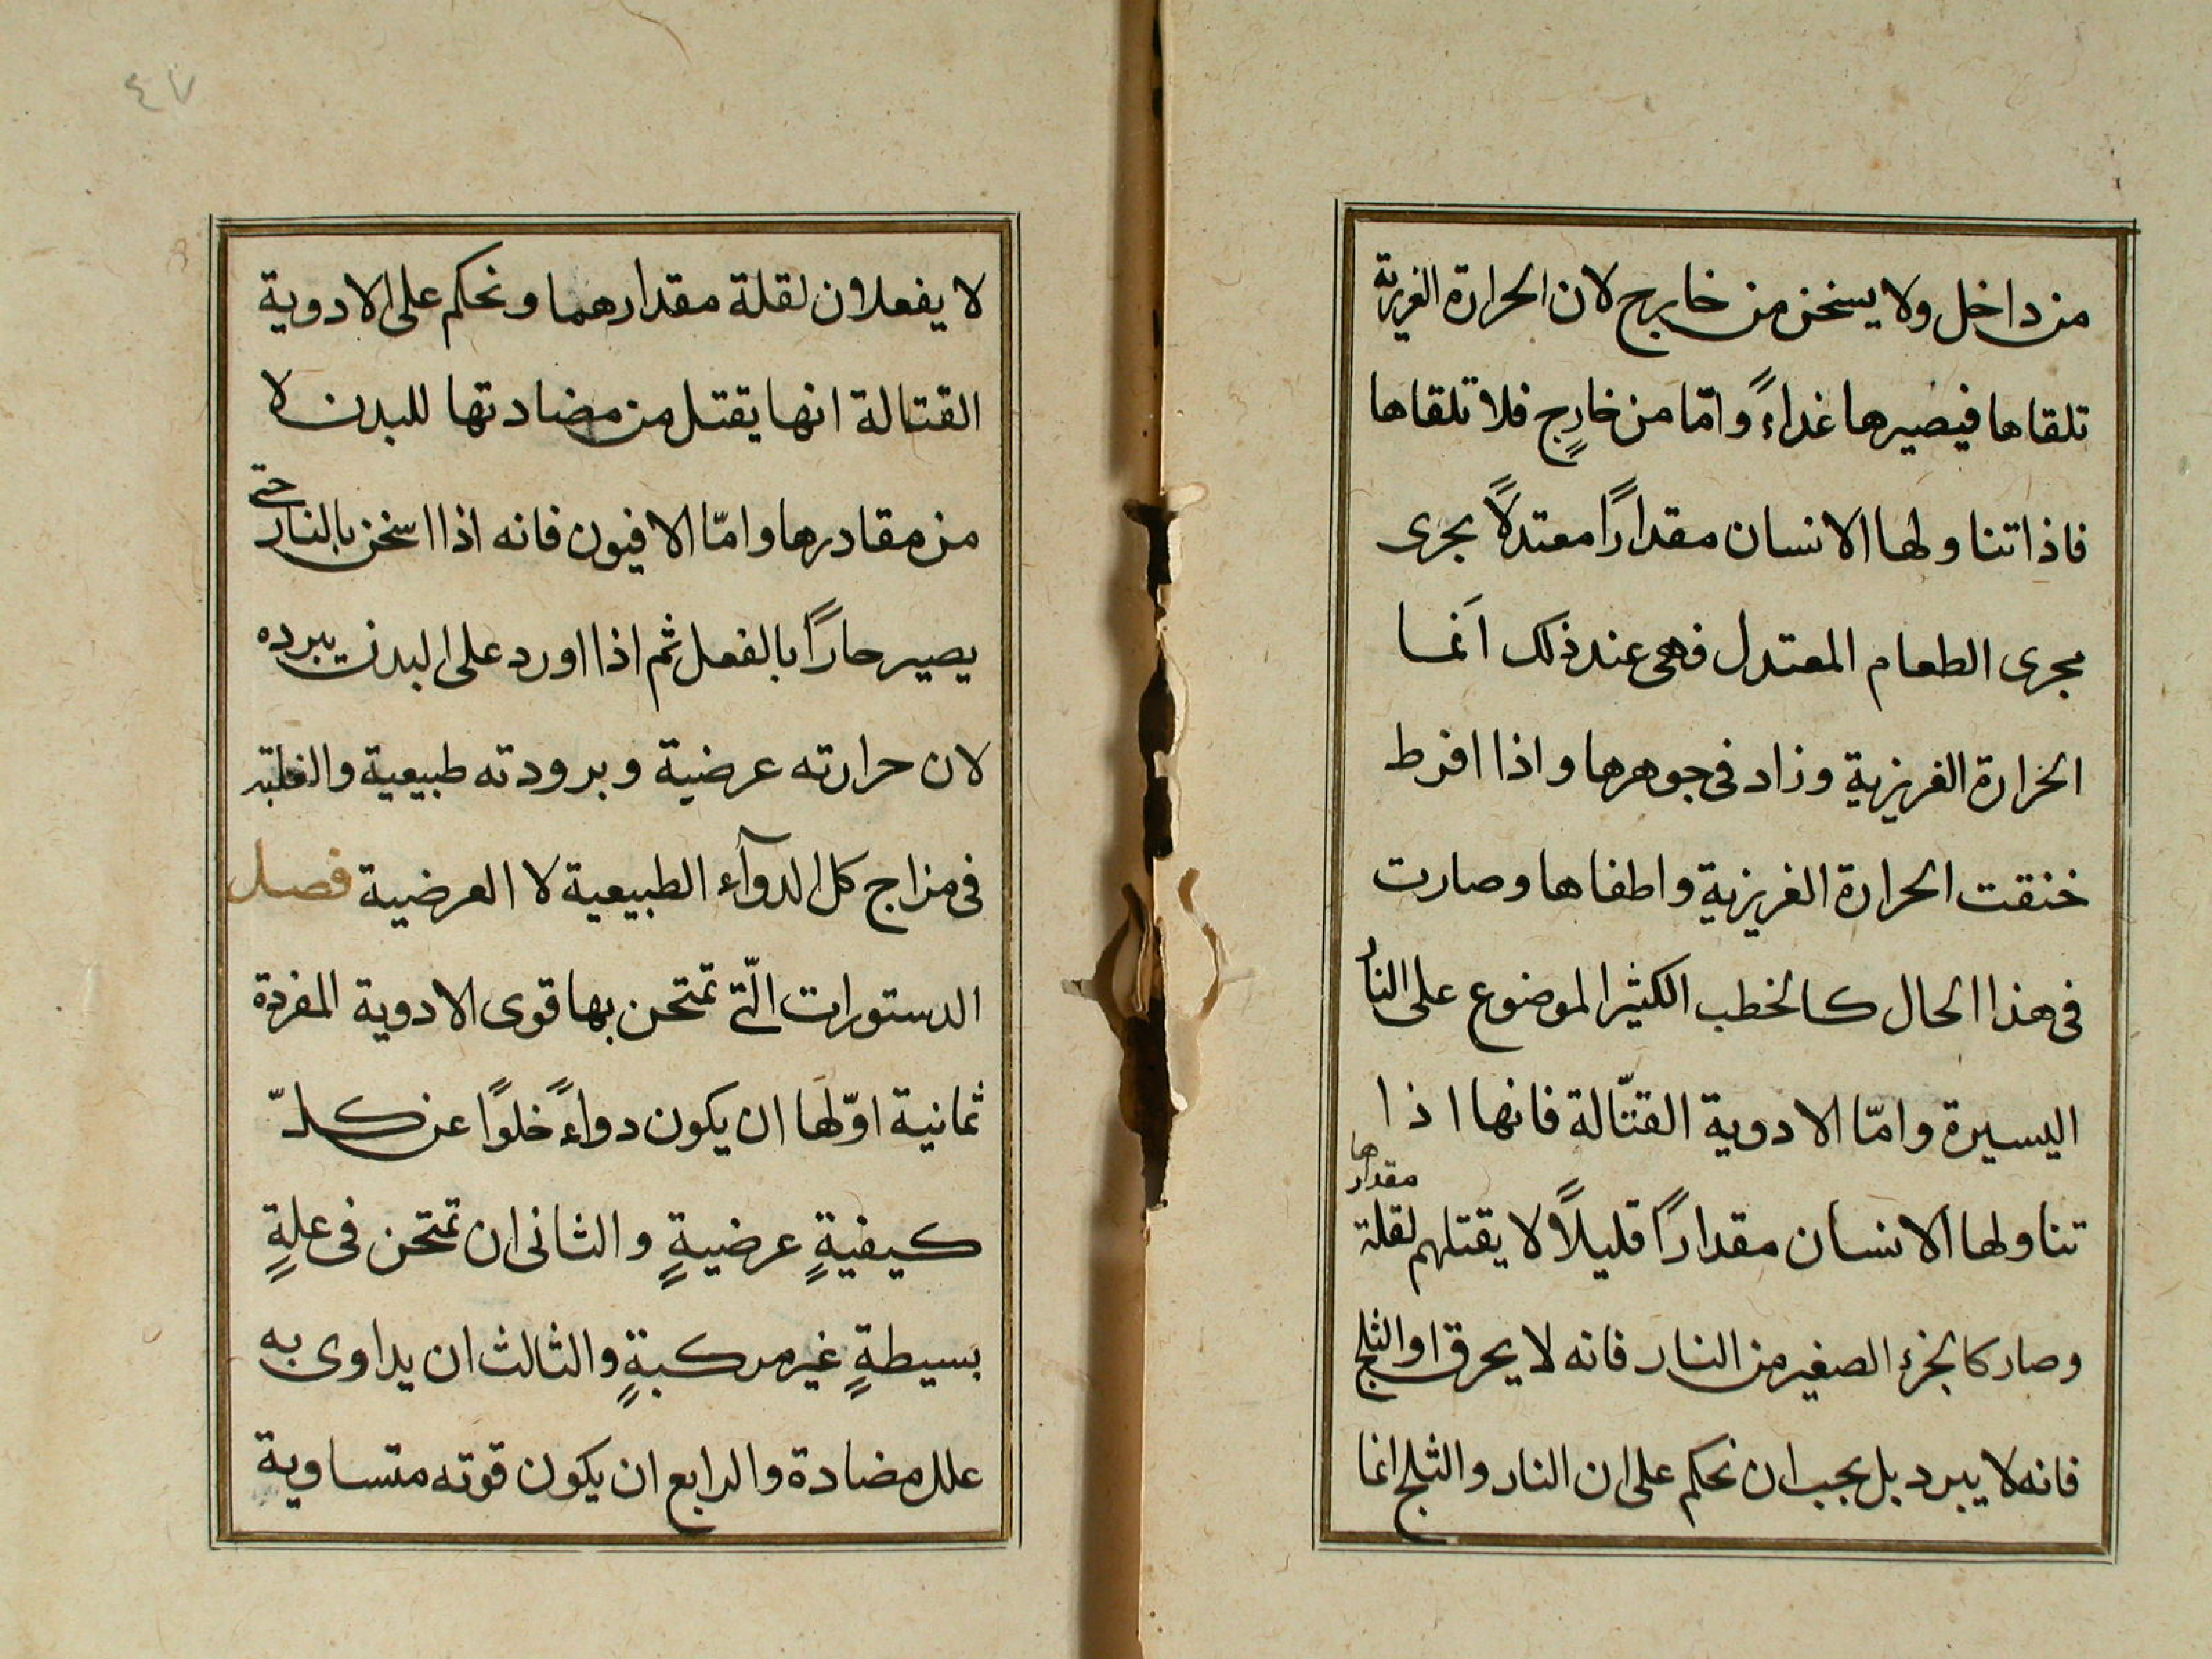 من داخل ولا يسخن من خارج لان الحرارة الغريزية
تلقاها فيصيرها غداءً وامّا من خارجٍ فلا تلقاها
فاذا تناولها الانسان مقدارًا معتدلًا يجرى
مجرى الطعام المعتدل فهى عند ذلك اَنما
الحرارة الغريزية وزاد فى جوهرها واذا افرط
خنقت الحرارة الغريزية واطفاها وصارت
فى هذا الحال كالخطب الكثير الموضوع على النار
اليسيرة وامّا الادوية القتّالة فانها اذا
تناولها الانسان مقدارًا قليلًا لا يقتلهم لقلة مقدارها
وصار كالجزء الصغير من النار فانه لا يحرق او الثلج
فانه لا يبرد بل يجب ان نحكم على ان النار والثلج انما
٤٧
لا يفعلان لقلة مقدارهما ونحكم على الادوية
القتالة انها يقتل من مضادتها للبدن لا
من مقادرها وامّا الافيون فانه اذا اسخن بالنار حتى
يصير حارًا بالفعل ثم اذا اورد على البدن يبرده
لان حرارته عرضية وبرودته طبيعية والغلبة
فى مزاج كل الدوآء الطبيعية لا العرضية فصل
الدستورات الّتى تمتحن بها قوى الادوية المفردة
ثمانية اوّلها ان يكون دواءً خلوًا عن كلّ
كيفيةٍ عرضيةٍ والثانى ان تمتحن فى علةٍ
بسيطةٍ غير مركبةٍ والثالث ان يداوى به
علل مضادة والرابع ان يكون قوته متساوية